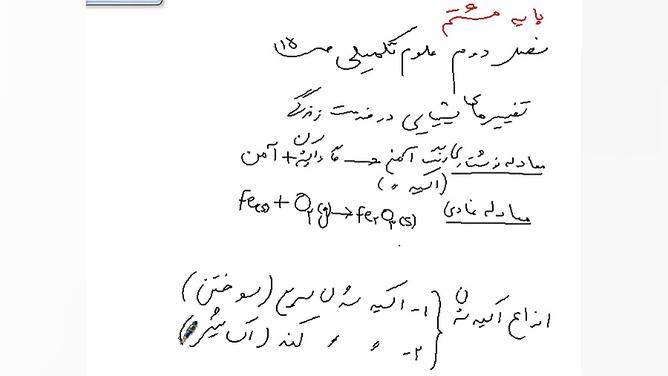 پایه هشتم
فصل دوم علوم تکمیلی ص ۱۵
تغییرهای شیمیایی در خدمت زندگی
معادله نوشتاری زنگ آهن → گاز اکسیژن + آهن
(اکسید)
معادله نمادی Fe(s) + O₂(g) → Fe₂O₃(s)
انواع اکسید شدن
۱- اکسید شدن سریع (سوختن)
۲- " " کند (اکسایش)